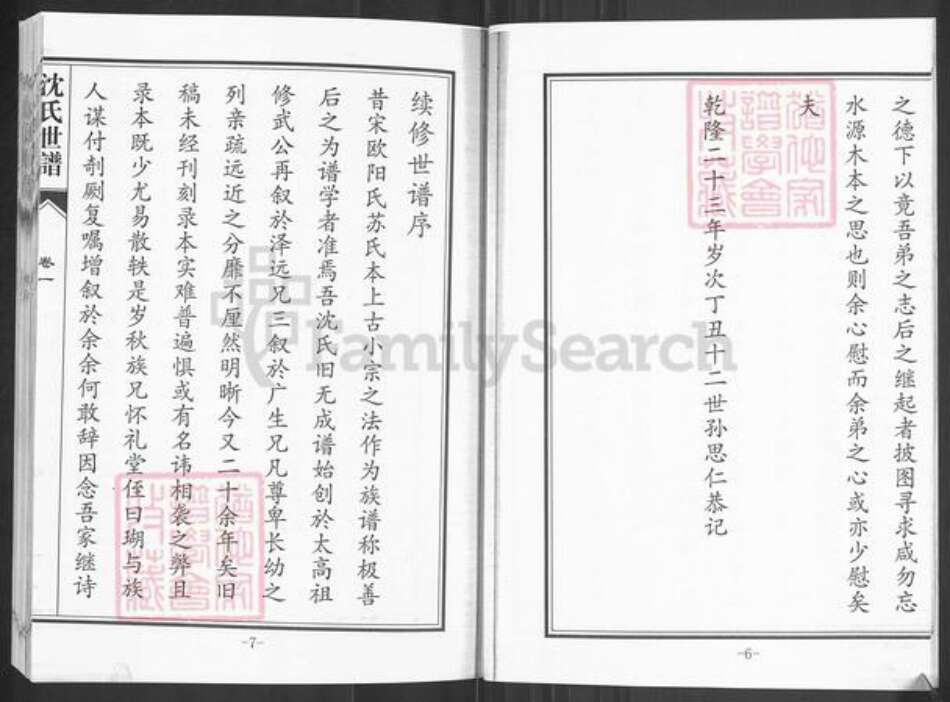 之德下以竟吾弟之志后之继起者披图寻求咸勿忘
水源木本之思也则余心慰而余弟之心或亦少慰矣
夫
乾隆二十三年岁次丁丑十二世孙思仁恭记
-6-
续修世谱序
昔宋欧阳氏苏氏本上古小宗之法作为族谱称极善
后之为谱学者准焉吾沈氏旧无成谱始创於太高祖
修武公再叙於泽远兄三叙於广生兄凡尊卑长幼之
列亲疏远近之分靡不厘然明晰今又二十余年矣旧
稿未经刊刻录本实难普遍惧或有名讳相袭之弊且
录本既少尤易散轶是岁秋族兄怀礼堂侄曰瑚与族
人谋付剞劂复嘱增叙於余余何敢辞因念吾家继诗
沈氏世譜
卷一
-7-
FamilySearch